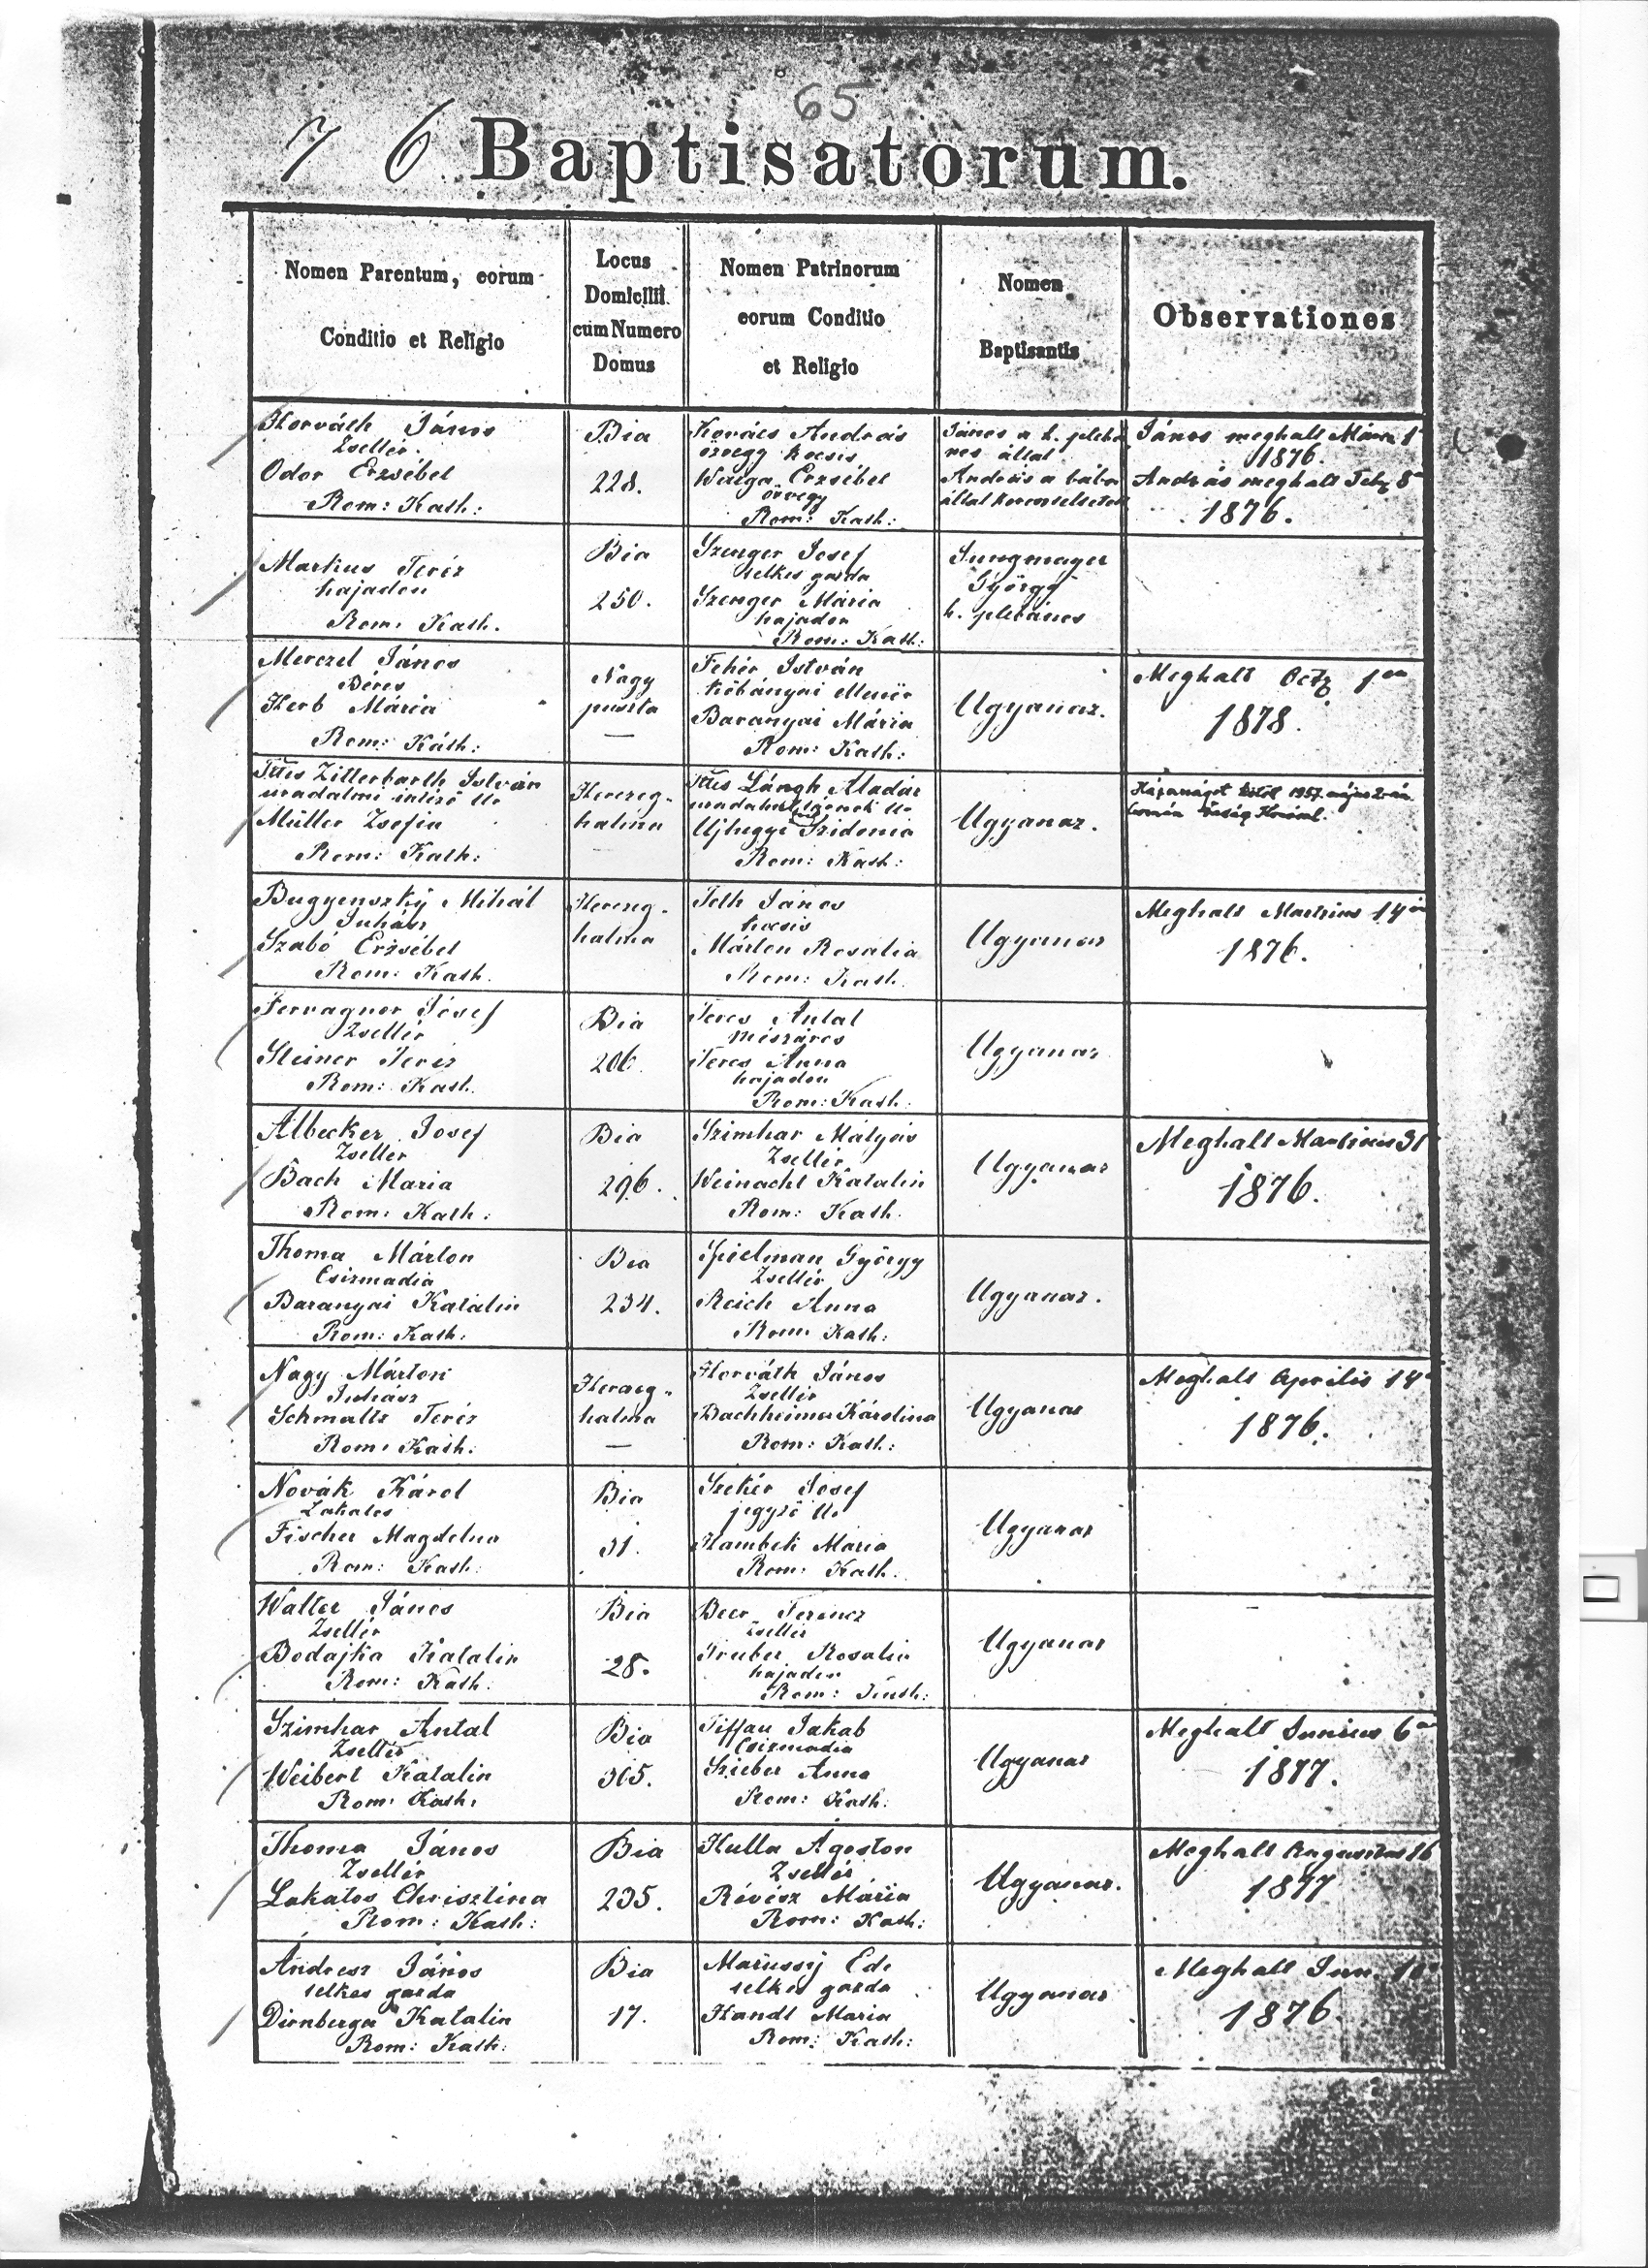 65
76 Baptisatorum.
Nomen Parentum, eorum
Conditio et Religio
Locus
Domicilii
cum Numero
Domus
Nomen Patrinorum
eorum Conditio
et Religio
Nomen
Baptisantis
Observationes
Horváth János
Zsellér
Odor Erzsébet
Rom: Kath:
Bia
228.
Kovács András
özvegy kocsis
Varga Erzsébet
özvegy
Rom: Kath:
János a h. plebá
nos által
András a bába
által
János meghalt
1876.
András meghalt Feb 8
1876.
Markus Teréz
hajadon
Rom: Kath.
Bia
250.
Szenger Josef
telkes gazda
Szenger Mária
hajadon
Rom: Kath:
Jungmayer
György
h. plebános
Merczel János
Béres
Herb Mária
Rom: Káth:
Nagy
puszta
Fehér István
kőbányai
Baranyai Mária
Rom: Kath:
Ugyanaz.
Meghalt
1878.
Zitterbarth István
uradalmi intéző
Müller Zsofia
Rom: Kath:
Herczeg-
halma
Lángh Aladár
Ujhegyi Szidonia
Rom: Kath:
Ugyanaz.
Házasságot kötöt 1957
Bugyenszky Mihál
Juhász
Szabó Erzsébet
Rom: Kath.
Herczeg-
halma
Toth János
kocsis
Márton Rosalia
Rom: Kath.
Ugyanaz
Meghalt Martius 14
1876.
Fervagner Josef
Zsellér
Steiner Teréz
Rom: Kath.
Bia
206
Teres Antal
mészáros
Teres Anna
hajadon
Rom: Kath:
Ugyanaz
Albecker Josef
Zseller
Bach Maria
Rom: Kath:
Bia
296.
Szimhar Mátyás
Zsellér
Weinacht Katalin
Rom: Kath.
Ugyanaz
Meghalt Martius 31
1876.
Thoma Márton
Csizmadia
Baranyai Katalin
Rom: Kath:
Bia
234.
Spielman György
Zsellér
Reich Anna
Rom: Kath:
Ugyanaz.
Nagy Márton
Juhász
Schmaltz Teréz
Rom: Kath:
Herczeg-
halma
Horváth János
Zsellér
Bachheimer Károlina
Rom: Kath:
Ugyanaz
Meghalt Aprilis 14
1876.
Novák Károl
Lakatos
Fischer Magdelna
Rom: Kath:
Bia
31.
Szekér Josef
jegyző
Hambek Maria
Rom: Kath:
Ugyanaz
Walter János
Zsellér
Bodajka Katalin
Rom: Kath:
Bia
28.
Beer Ferencz
Zsellér
Gruber Rosalia
hajadon
Rom: Kath:
Ugyanaz
Szimhar Antal
Zsellér
Weibert Katalin
Rom: Kath:
Bia
305.
Tiffau Jakab
Csizmadia
Szieber Anna
Rom: Kath:
Ugyanaz
Meghalt Junius 6
1877.
Thoma János
Zsellér
Lakatos Chrisztina
Rom: Kath:
Bia
235.
Hulla Ágoston
Zsellér
Révész Mária
Rom: Kath:
Ugyanaz.
Meghalt Augusztus 16
1877
Andresz János
telkes gazda
Dirnberger Katalin
Rom: Kath:
Bia
17.
Marussy Ede
telkes gazda
Handl Maria
Rom: Kath:
Ugyanaz
Meghalt Jun.
1876.